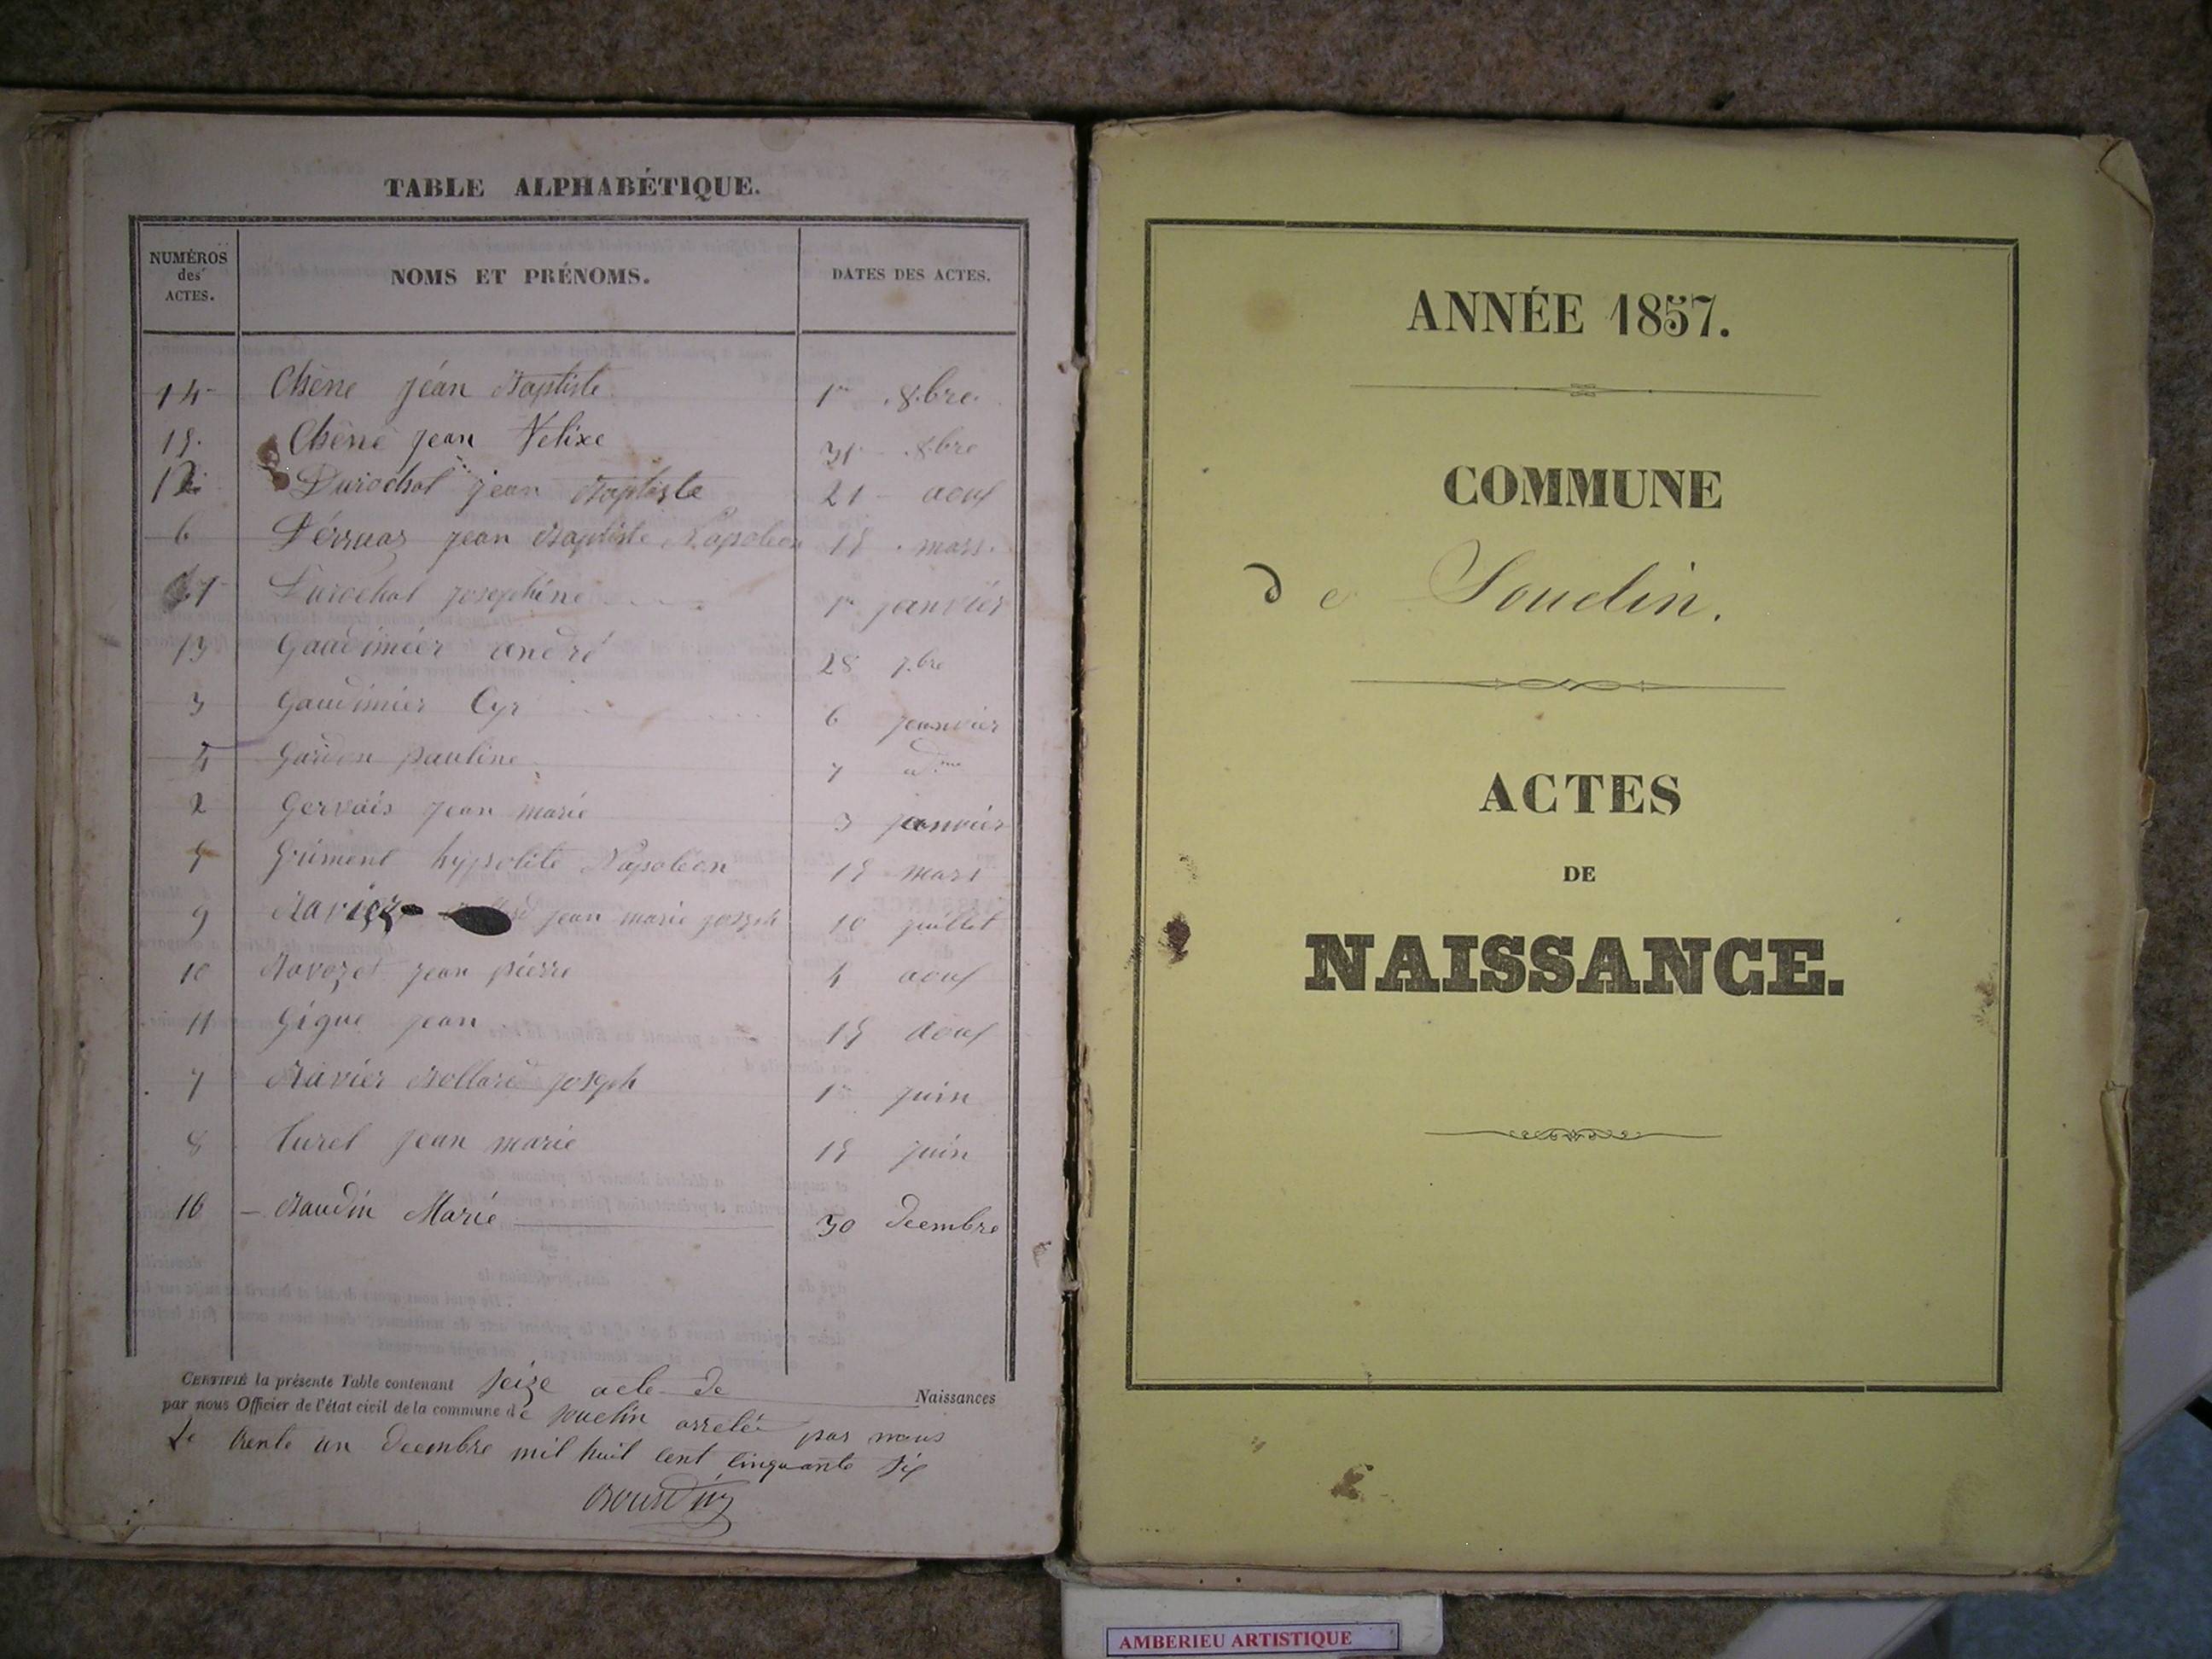 TABLE ALPHABÉTIQUE.
NUMÉROS des ACTES. NOMS ET PRÉNOMS. DATES DES ACTES.
14 Chêne jéan Baptiste 1er 8bre
15 Chêne jean Felixe 31 8bre
12 Durochat jean Baptiste 21 aout
6 jean Baptiste Napoléon 15 mars
1 Durochat joséphine 1er janvier
13 Gaudimier andré 28 7.bre
3 Gaudimier Cyr 6 janvier
4 Gardon pauline 7 dme
2 Gervais jean marie 3 janvier
5 hypolite Napoleon 15 mars
9 Ravier jean marie joseph 10 juillet
10 Ravozet jean pierre 4 aout
11 Gigue jean 15 aout
7 Ravier Bollard joseph 1er juin
8 Curel jean marie 15 juin
16 – Baudin Marie 30 decembre
CERTIFIÉ la présente Table contenant seize acte de Naissances
par nous Officier de l'état civil de la commune de souclin arretée par nous
Le trente un decembre mil huit cent cinquante six
ANNÉE 1857.
COMMUNE
de Souclin.
ACTES
DE
NAISSANCE.
AMBERIEU ARTISTIQUE